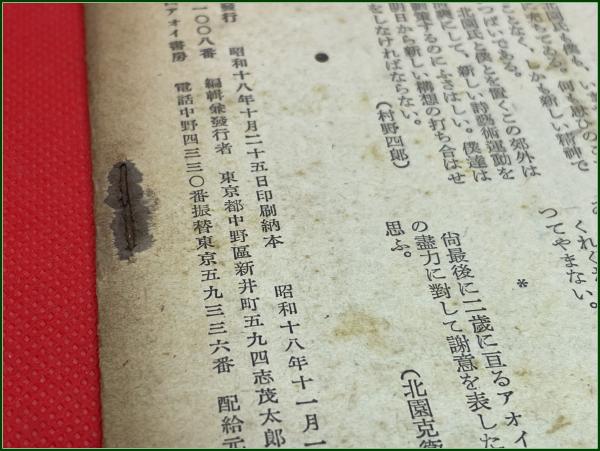 北園氏も僕も、い
に充ちてゐる。何も思ひの
ことなく、しかも新しい精神で
つぱいである。
北園氏と僕とを置くこの郊外は
詩興として、新しい詩藝術運動を
劃策するのにふさはしい。僕達は
明日から新しい構想の打ち合はせ
をしなければならない。
(村野四郎)
くれ
つてやまない。
*
尙最後に二歲に亘るアオイ
の盡力に對して謝意を表した
思ふ。
(北園克衞
昭和十八年十月二十五日印刷納本
昭和十八年十一月一
發行
一〇〇八番
編輯兼發行者
東京都中野區新井町五九四志茂太郎
アオイ書房
電話中野四三三〇番振替東京五九三三六番
配給元